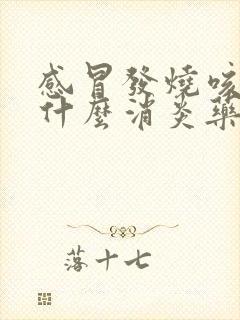 感冒發燒咳
什麼消炎藥
落十七